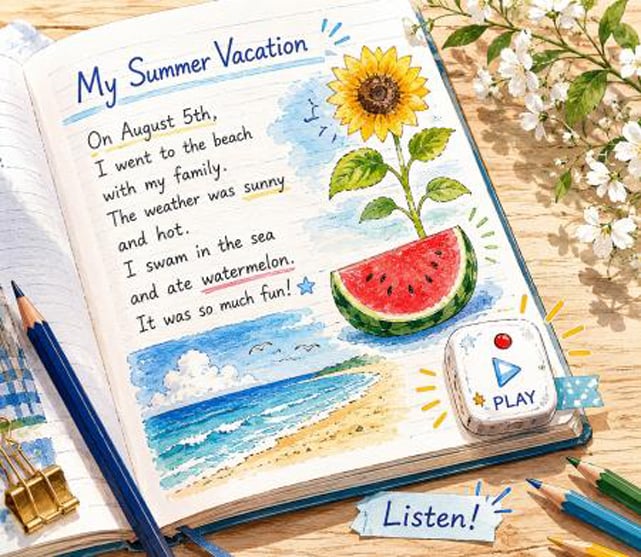 My Summer Vacation
On August 5th,
I went to the beach
with my family.
The weather was sunny
and hot.
I swam in the sea
and ate watermelon.
It was so much fun!
PLAY
Listen!